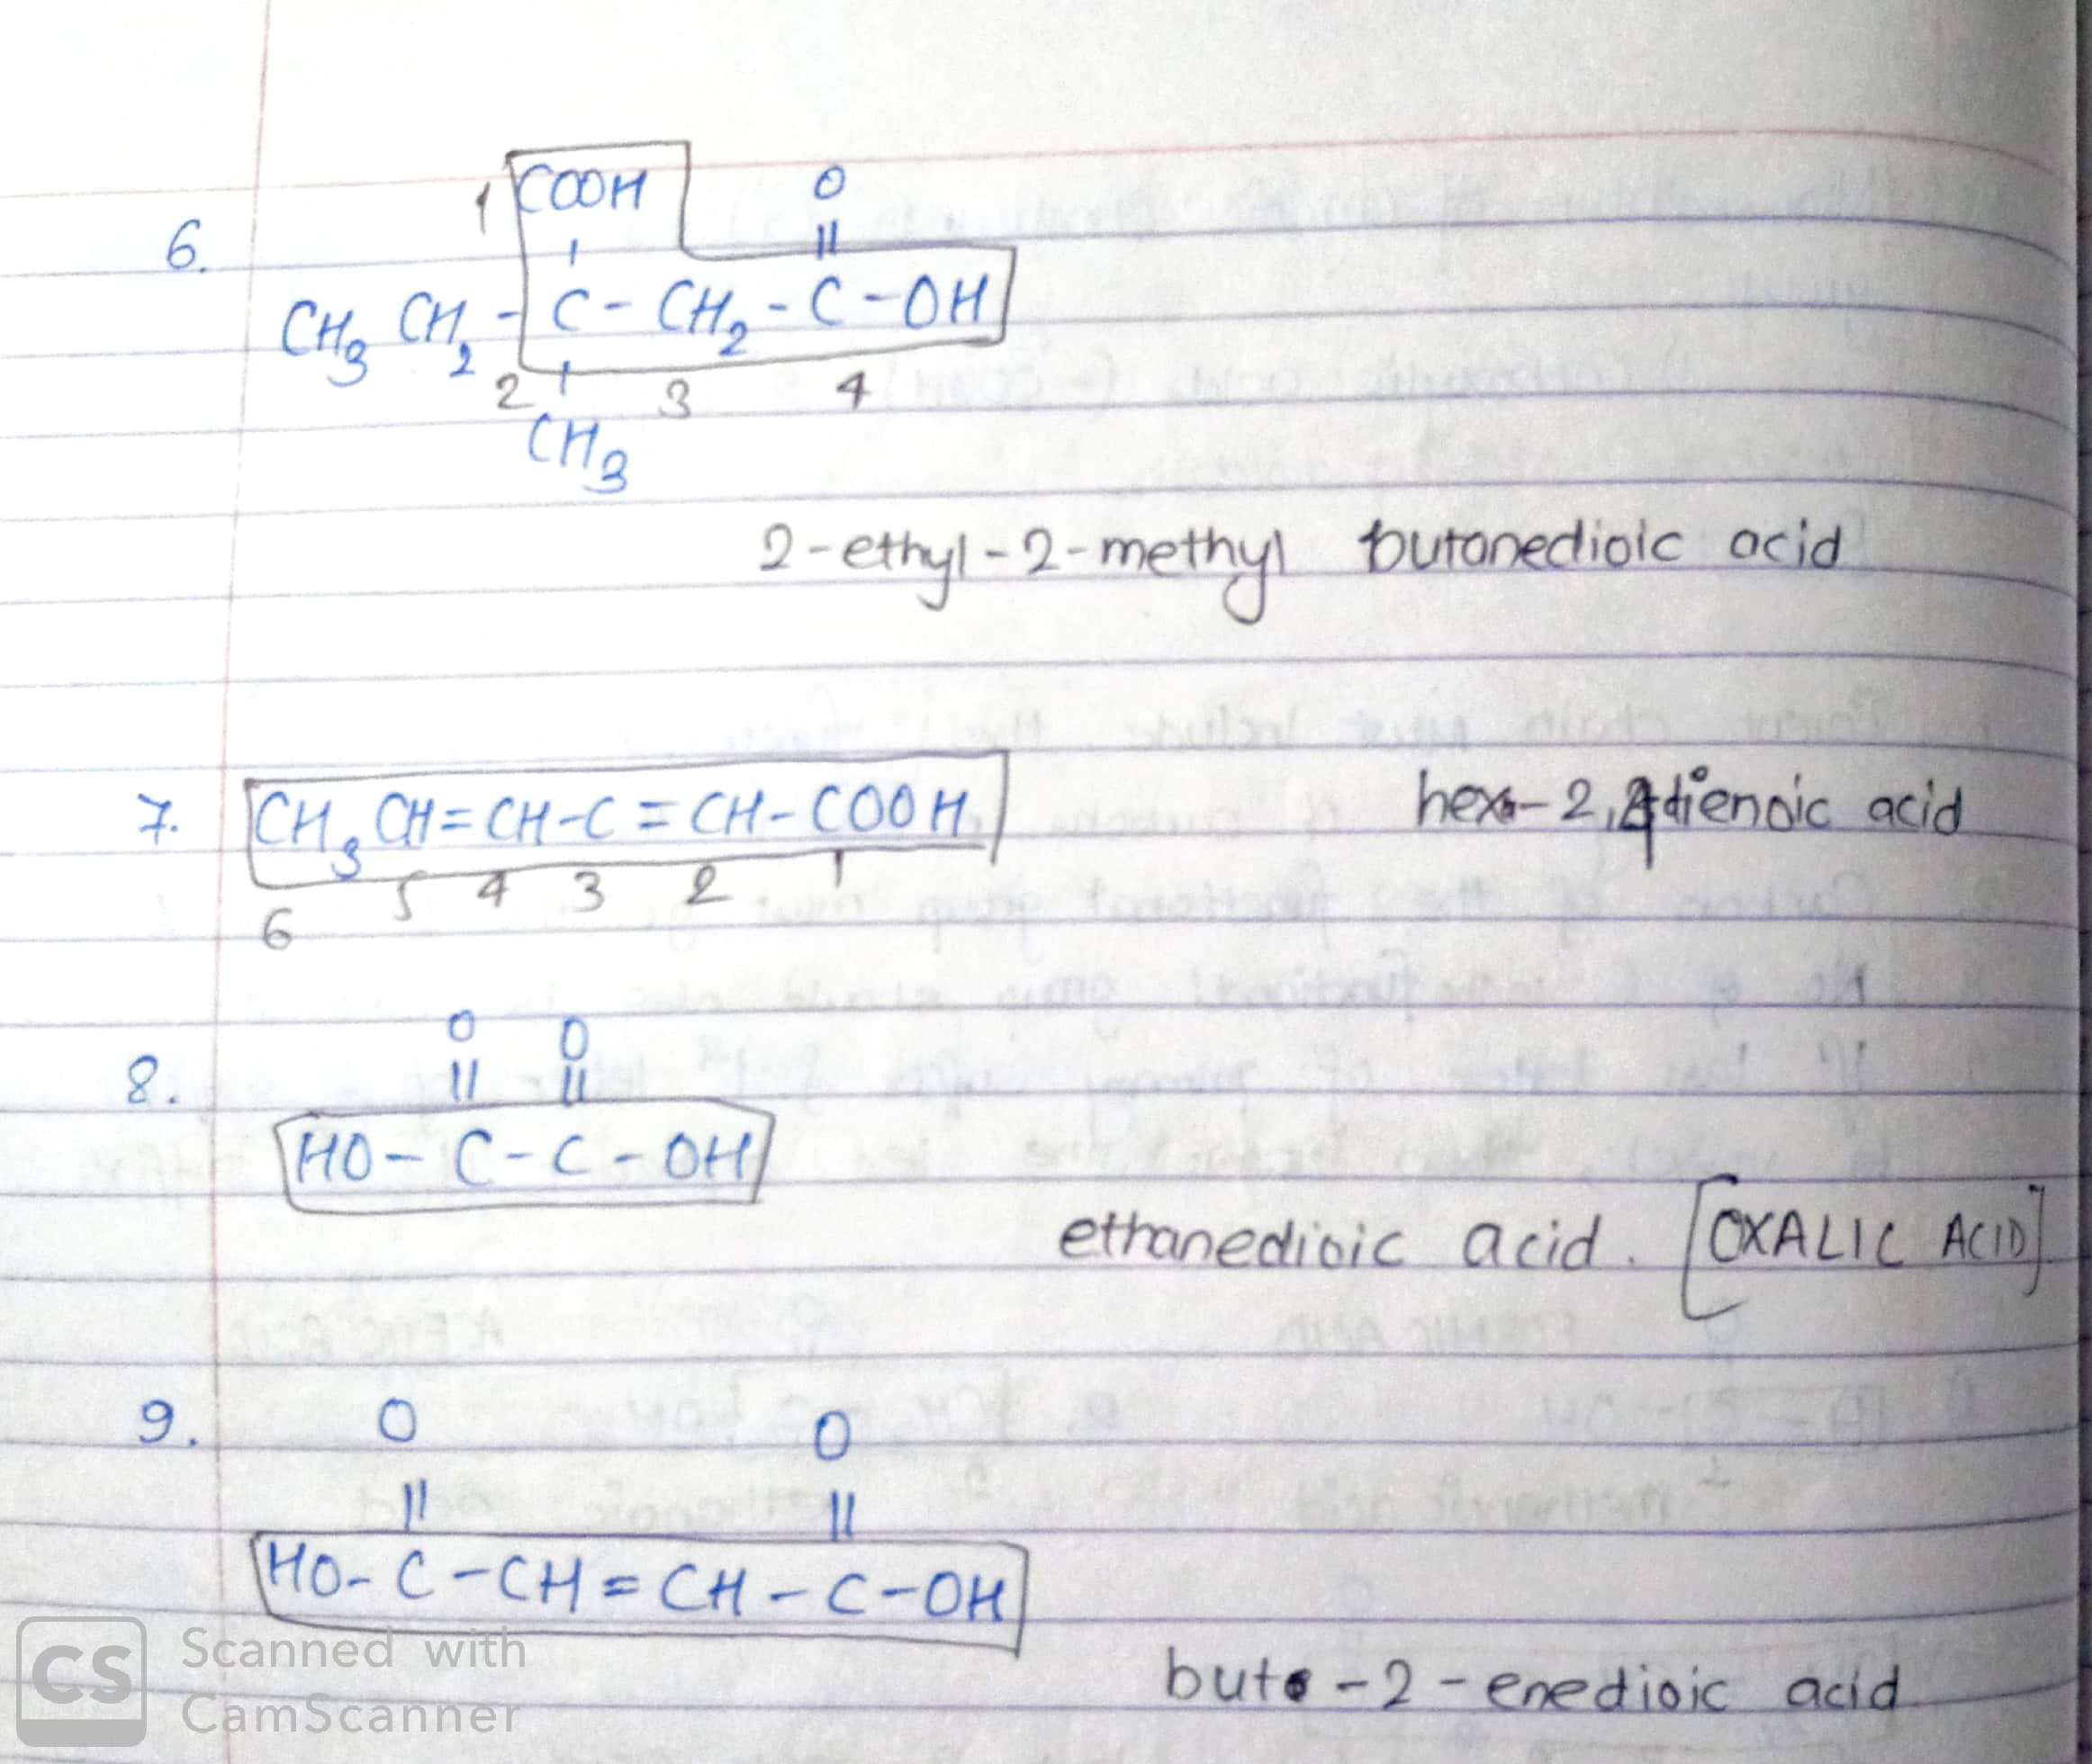 1 COOH O
6. ||
CH₃ CH₂ - C - CH₂ - C - OH
2 3 4
CH₃
2-ethyl-2-methyl butanedioic acid
7. CH₃ CH=CH-C=CH-COOH hex-2,4dienoic acid
6 5 4 3 2 1
O O
8. || ||
HO - C - C - OH
ethanedioic acid. [OXALIC ACID]
9. O O
|| ||
HO - C - CH = CH - C - OH
CS Scanned with
CamScanner
but-2-enedioic acid